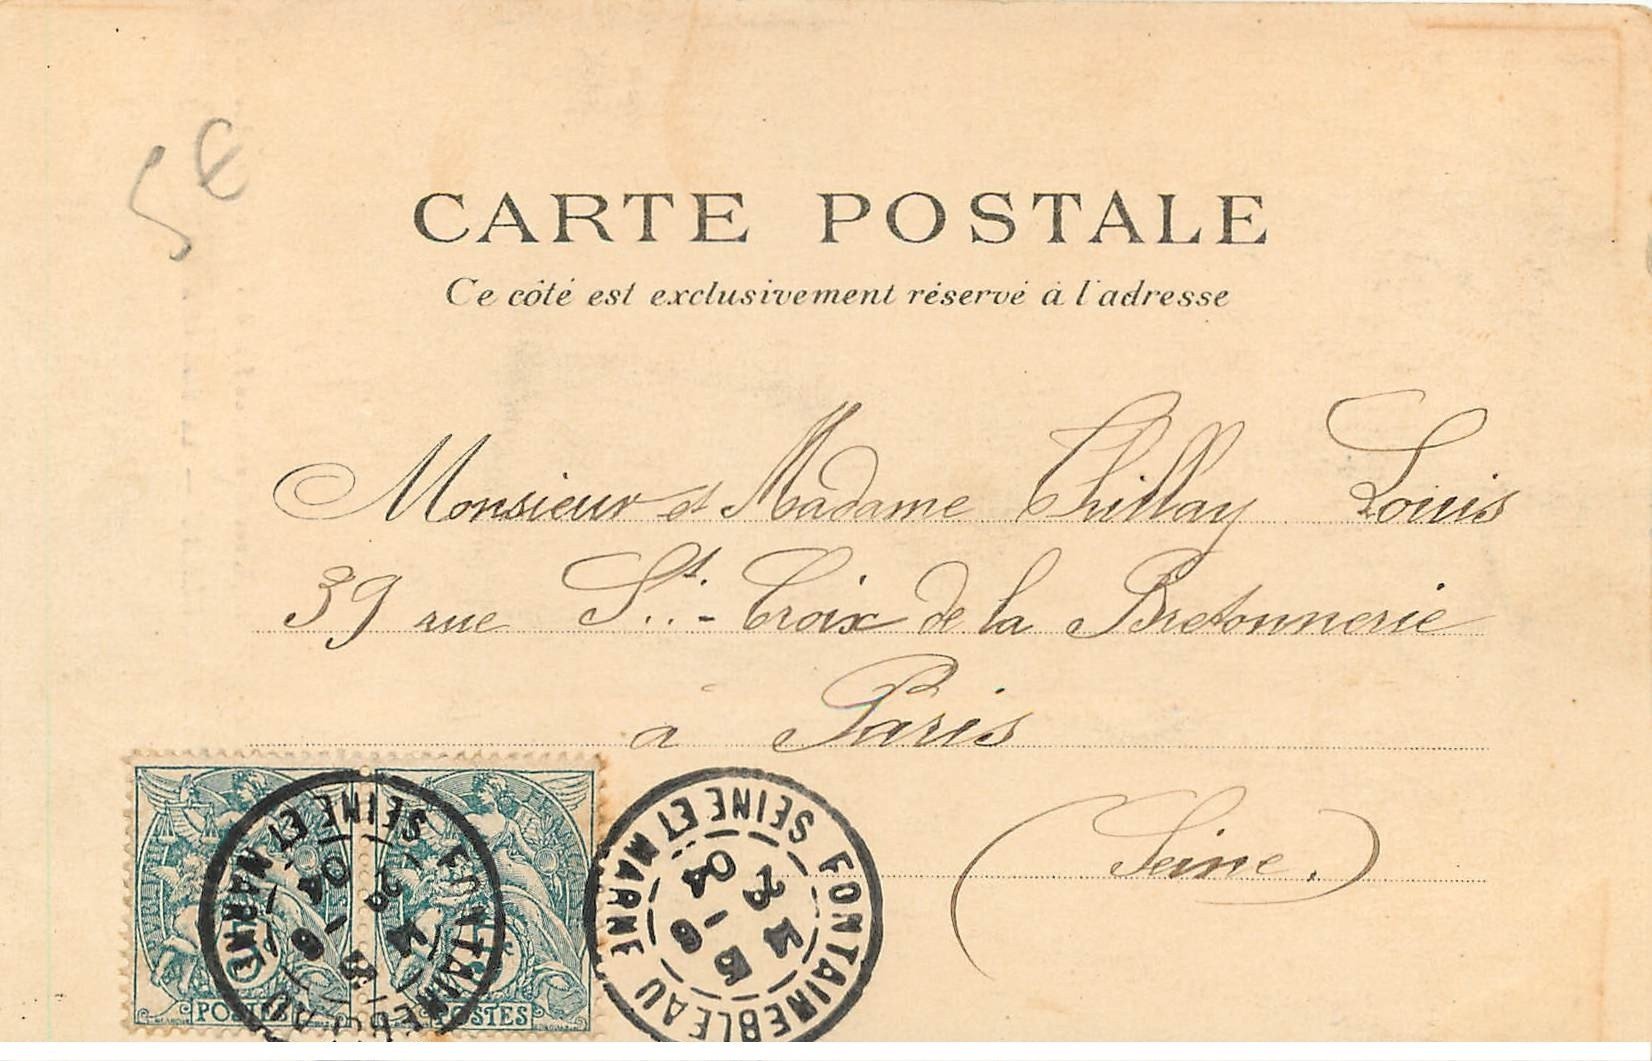 5€
CARTE POSTALE
Ce côté est exclusivement réservé à l'adresse
Monsieur et Madame Thillay Louis
39 rue St.. - Croix de la Bretonnerie
à Paris
(Seine.)
POSTES
POSTES
FONTAINEBLEAU
SEINE ET MARNE
FONTAINEBLEAU
SEINE ET MARNE